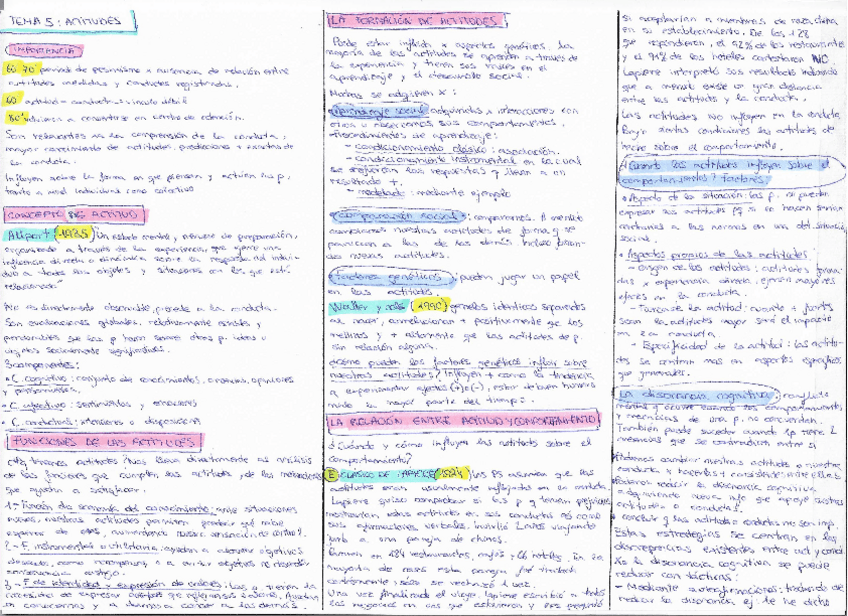 TEMA 5: ACTITUDES
IMPORTANCIA
60-70 periodo de pesimismo x ausencia de relación entre
actitudes medidas y conductas registradas.
60 actitud - conducta → vínculo débil
80' vuelven a convertirse en centro de atención.
Son relevantes en la comprensión de la conducta,
mayor conocimiento de actitudes, predicciones + exactas de
la conducta.
Influyen sobre la forma en que piensan y actúan las p,
tanto a nivel individual como colectivo
CONCEPTO DE ACTITUD
Allport (1935) Un estado mental, y neural de preparación,
organizado a través de la experiencia, que ejerce una
influencia directa o dinámica sobre la respuesta del indivi-
duo a todos los objetos y situaciones con los que está
relacionado"
No es directamente observable, precede a la conducta.
Son evaluaciones globales, relativamente estables y
perdurables que las p hacen sobre otras p, ideas u
objetos socialmente significativos.
3 componentes:
C. cognitivo: conjunto de conocimientos, creencias, opiniones
y pensamientos.
C. afectivo: sentimientos y emociones
C. conductual: intenciones o disposiciones
FUNCIONES DE LAS ACTITUDES
¿Xq tenemos actitudes? Nos lleva directamente al análisis
de las funciones que cumplen las actitudes, de las necesidades
que ayudan a satisfacer.
1- Función de economía del conocimiento: ante situaciones
nuevas, nuestras actitudes permiten predecir qué cabe
esperar de ellas, aumentando nuestra sensación de control.
2- F. instrumental o utilitaria: ayudan a alcanzar objetivos
deseados, como recompensas, o a evitar objetivos no deseados
3- F. de identidad y expresión de valores: las p tienen la
necesidad de expresar
LA FORMACIÓN DE ACTITUDES
Puede estar influida x aspectos genéticos, la
mayoría de las actitudes se aprenden a través de
la experiencia y tienen sus raíces en el
aprendizaje y el desarrollo social.
Muchas se adquieren x:
Aprendizaje social: adquiridas x interacciones con
otros u observamos sus comportamientos.
Procedimientos de aprendizaje:
- condicionamiento clásico: asociación.
- condicionamiento instrumental en la cual
se refuerzan las respuestas q llevan a un
resultado +.
- modelado: mediante ejemplo
Comparación social: comparamos. A menudo
cambiamos nuestras actitudes de forma q se
parezcan a las de los demás. Incluso forman-
do nuevas actitudes.
Factores genéticos: pueden jugar un papel
en las actitudes.
Waller y cols (1990) gemelos idénticos separados
al nacer, correlacionan + positivamente que los
mellizos y + altamente que las actitudes de p.
sin relación alguna.
¿Cómo pueden los factores genéticos influir sobre
nuestras actitudes? Influyen + como la tendencia
a experimentar afectos (+) o (-), estar de buen humor
la mayor parte del tiempo.
LA RELACIÓN ENTRE ACTITUD Y COMPORTAMIENTO
¿Cuándo y cómo influyen las actitudes sobre el
comportamiento?
E CLÁSICO DE LAPIERE (1934) los PS asumían que las
actitudes eran usualmente reflejadas en la conducta
Lapiere quiso comprobar si las p q tenían prejuicios
mostraban estas actitudes en sus conductas así como
sus afirmaciones verbales. Invirtió 2 años viajando
junto a una pareja de chinos.
Pararon en 184 restaurantes, cafés y 66 hoteles. En la
mayoría de casos esta pareja fue tratada
cortésmente; sólo se rechazó 1 vez.
Una vez finalizado el viaje, Lapiere escribió a todos
los negocios en los que estuvieron y les preguntó
si aceptarían a miembros de raza china
en su establecimiento. De los 128
que respondieron, el 92% de los restaurantes
y el 91% de los hoteles contestaron NO.
Lapiere interpretó sus resultados indicando
que a menudo existe una gran distancia
entre las actitudes y la conducta.
Las actitudes NO influyen en la conducta
Bajo ciertas condiciones las actitudes de
hecho sobre el comportamiento.
¿Cuándo las actitudes influyen sobre el
comportamiento? Factores
Aspectos de la situación: las p. no pueden
expresar sus actitudes pq si se hacen serían
contrarias a las normas en una det. situación
social.
Aspectos propios de las actitudes
- Origen de las actitudes: actitudes forma-
das x experiencia directa, ejercen mayores
efectos en la conducta.
- Fuerza de la actitud: cuanto + fuertes
sean las actitudes mayor será el impacto
en la conducta
- Especificidad de la actitud: las actitu-
des se centran más en aspectos específicos
que generales.
La disonancia cognitiva:
ocurre cuando los comportamientos
y creencias de una p. no concuerdan.
También puede suceder cuando 1p tiene 2
creencias que se contradicen entre sí
Podemos cambiar nuestras actitudes o nuestra
conducta y hacerlas + consistentes entre ellas.
Podemos reducir la disonancia cognitiva,
adquiriendo nueva info que apoye nuestras
actitudes o conductas.
concluir q las actitudes o conductas no son imp.
Estas estrategias se centran en las
discrepancias existentes entre act y cond.
Xo la disonancia cognitiva se puede
reducir con tácticas:
- Mediante autoafirmaciones: tratando de
reducir la disonancia, ej: He dicho